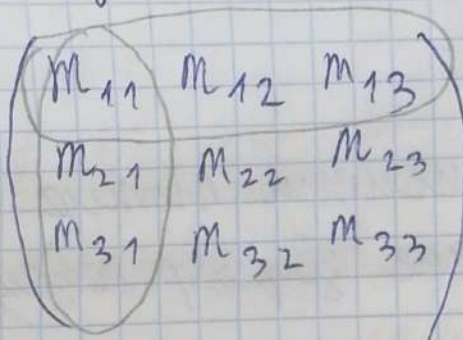 m11 m12 m13
m21 m22 m23
m31 m32 m33